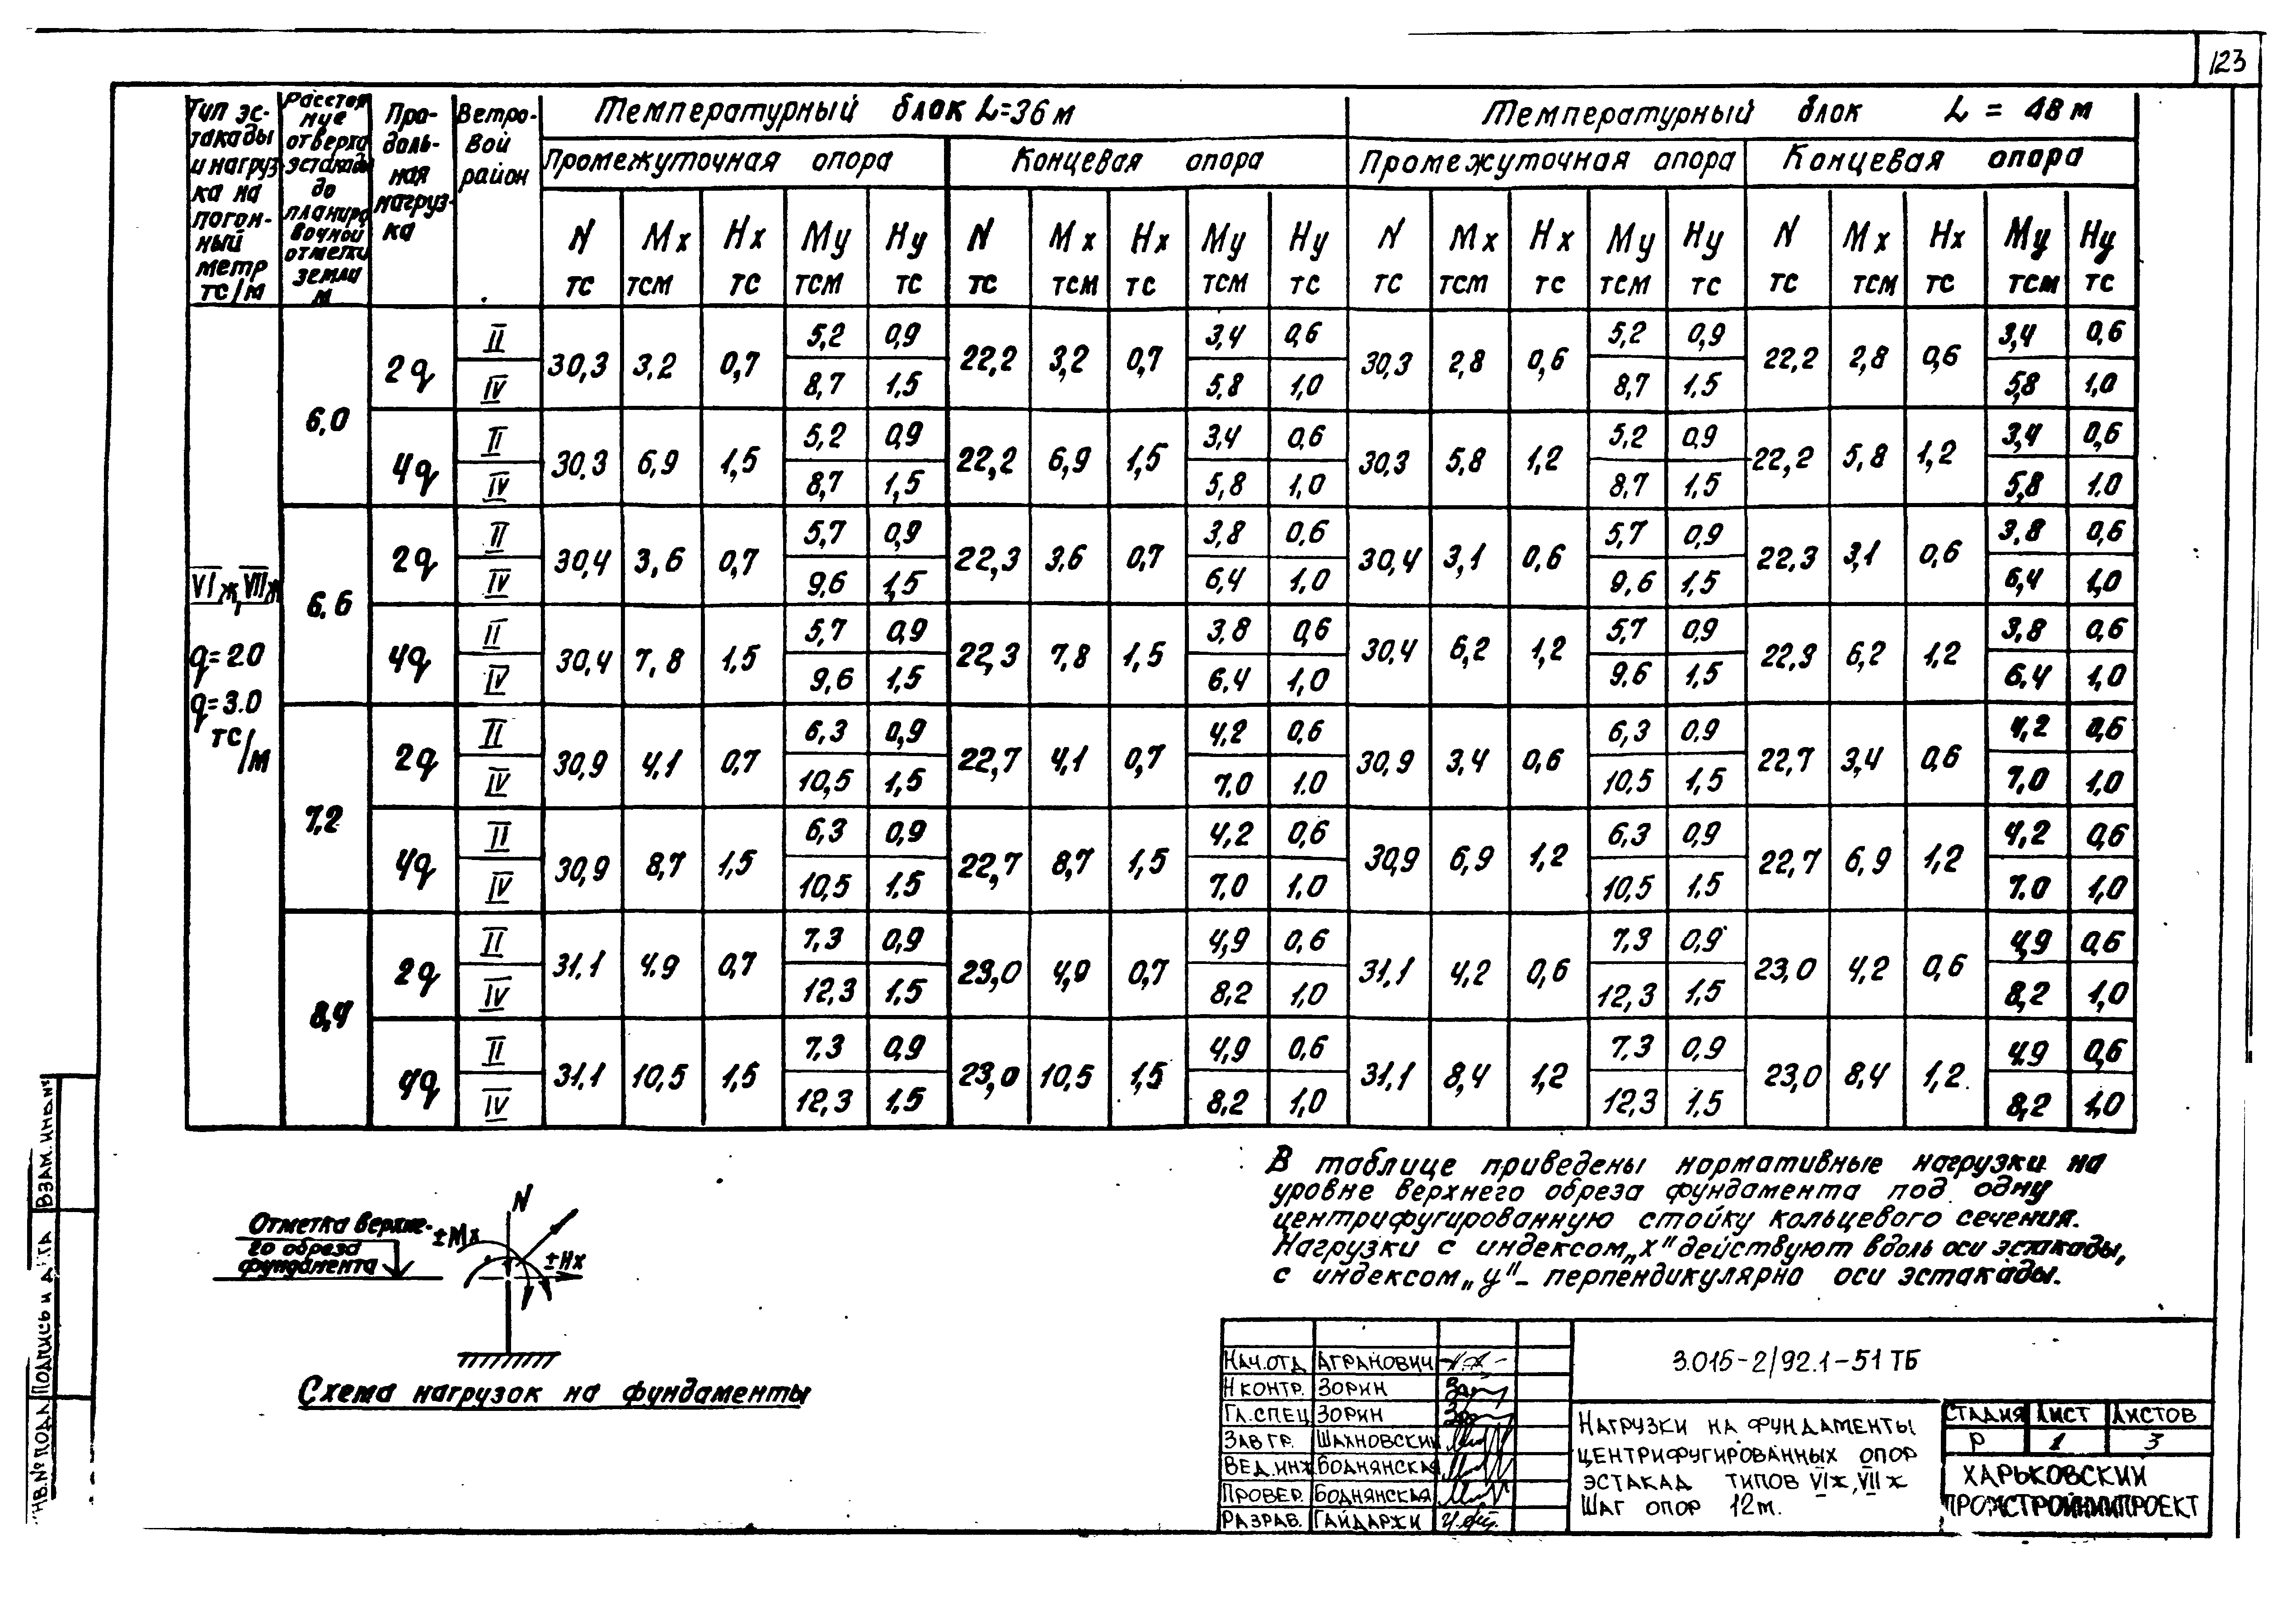 123
Тип эс-
такады
и нагруз
ка на
погон-
ный
метр
тс/м
Расстоя
ние
от верха
эстакады
до
планиро
вочной
отметки
земли
м
Про-
доль-
ная
нагруз-
ка
Ветро-
вой
район
Температурный блок L=36 м
Температурный блок L = 48 м
Промежуточная опора
Концевая опора
Промежуточная опора
Концевая опора
N Mx Hx My Hy N Mx Hx My Hy N Mx Hx My Hy N Mx Hx My Hy
тс тсм тс тсм тс тс тсм тс тсм тс тс тсм тс тсм тс тс тсм тс тсм тс
VIж, VIIж
q=2.0
q=3.0
тс/м
6,0
2q
II 5,2 0,9 3,4 0,6 5,2 0,9 3,4 0,6
30,3 3,2 0,7 22,2 3,2 0,7 30,3 2,8 0,6 22,2 2,8 0,6
IV 8,7 1,5 5,8 1,0 8,7 1,5 5,8 1,0
4q
II 5,2 0,9 3,4 0,6 5,2 0,9 3,4 0,6
30,3 6,9 1,5 22,2 6,9 1,5 30,3 5,8 1,2 22,2 5,8 1,2
IV 8,7 1,5 5,8 1,0 8,7 1,5 5,8 1.0
6,6
2q
II 5,7 0,9 3,8 0,6 5,7 0,9 3,8 0,6
30,4 3,6 0,7 22,3 3,6 0,7 30,4 3,1 0,6 22,3 3,1 0,6
IV 9,6 1,5 6,4 1,0 9,6 1,5 6,4 1,0
4q
II 5,7 0,9 3,8 0,6 5,7 0,9 3,8 0,6
30,4 7,8 1,5 22,3 7,8 1,5 30,4 6,2 1,2 22,3 6,2 1,2
IV 9,6 1,5 6,4 1,0 9,6 1,5 6,4 1,0
7,2
2q
II 6,3 0,9 4,2 0,6 6,3 0,9 4,2 0,6
30,9 4,1 0,7 22,7 4,1 0,7 30,9 3,4 0,6 22,7 3,4 0,6
IV 10,5 1,5 7,0 1.0 10,5 1,5 7,0 1,0
4q
II 6,3 0,9 4,2 0,6 6,3 0,9 4,2 0,6
30,9 8,7 1,5 22,7 8,7 1,5 30,9 6,9 1,2 22,7 6,9 1,2
IV 10,5 1.5 7,0 1,0 10,5 1,5 7.0 1,0
8,4
2q
II 7,3 0,9 4,9 0,6 7,3 0,9 4,9 0,6
31.1 4.9 0,7 23,0 4,9 0,7 31.1 4,2 0,6 23,0 4,2 0,6
IV 12,3 1,5 8,2 1,0 12,3 1,5 8,2 1,0
4q
II 7,3 0,9 4,9 0,6 7,3 0,9 4,9 0,6
31.1 10,5 1,5 23,0 10,5 1,5 31.1 8,4 1,2 23,0 8,4 1,2
IV 12,3 1,5 8,2 1,0 12,3 1.5 8,2 1,0
В таблице приведены нормативные нагрузки на
уровне верхнего обреза фундамента под одну
центрифугированную стойку кольцевого сечения.
Нагрузки с индексом „х" действуют вдоль оси эстакады,
с индексом „у" - перпендикулярно оси эстакады.
N
Отметка верхне-
го обреза
фундамента
±Mx
±Hx
Схема нагрузок на фундаменты
Взам.инв.№
Подпись и дата
Инв.№ подл
Нач.отд Агранович
Н контр. Зорин
Гл.спец Зорин
Зав гр. Шахновский
Вед.инж Боднянская
Провер. Боднянская
Разраб. Гайдаржи
3.015-2/92.1-51 ТБ
Нагрузки на фундаменты
центрифугированных опор
эстакад типов VIж, VIIж
Шаг опор 12м.
Стадия Лист Листов
Р 1 3
Харьковский
Промстройниипроект